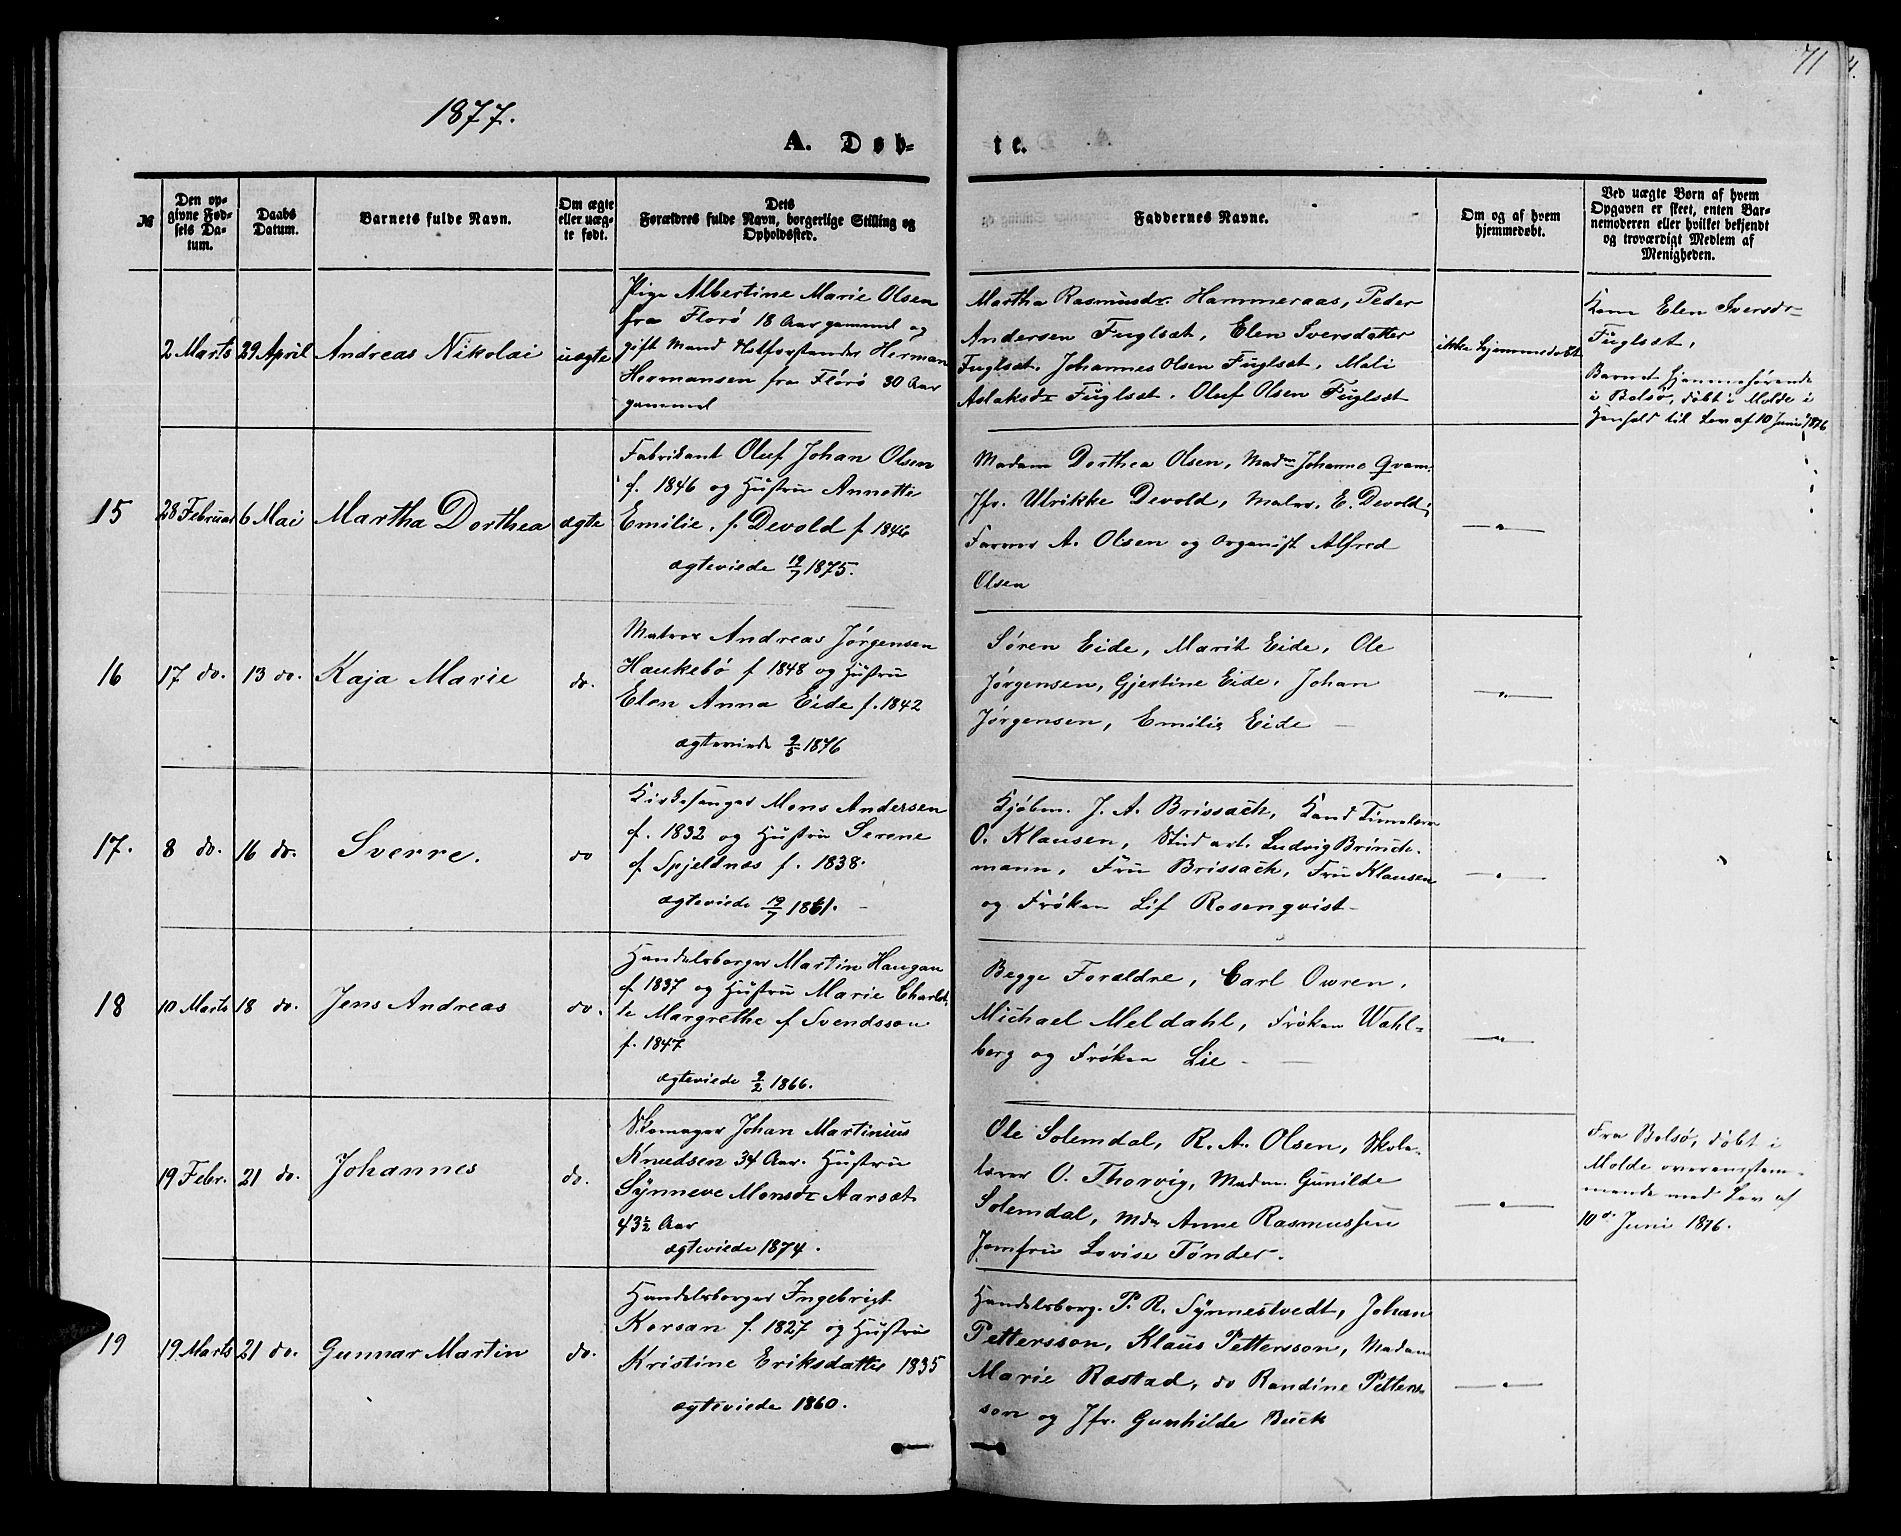 1877.
71
A. Døb-
te.
№
Den op-
givne Fød-
sels Da-
tum.
Daabs
Datum.
Barnets fulde Navn.
Om ægte
eller uæg-
te født.
Dets
Forældres fulde Navn, borgerlige Stilling og
Opholdssted.
Faddernes Navne.
Om og af hvem
hjemmedøbt.
Ved uægte Børn af hvem
Opgaven er skeet, enten Bar-
nemoderen eller hvilket bekjendt
og troværdigt Medlem af
Menigheden.
2 Marts
29 April
Andreas Nikolai
uægte
Pige Albertine Marie Olsen
fra Florø 18 Aar gammel og
gift Mand Notforstander Herman
Hermansen fra Florø 30 Aar
gammel
Martha Rasmusdr. Hammeraas, Peder
Andersen Fuglset, Elen Sversdatter
Fuglset. Johannes Olsen Fuglset, Mali
Aslaksdr Fuglset. Oluf Olsen Fuglset
ikke hjemmedøbt
Elen Sversdr
Fuglset,
Barnet hjemmehørende
i Bolsø, døbt i Molde i
Henhold til Lov af 10 Juni 1876
15
28 Februar
6 Mai
Martha Dorthea
ægte
Fabrikant Oluf Johan Olsen
f. 1846 og Hustru Annette
Emilie, f. Devold f 1846
ægteviede 19/7 1875.
Madam Dorthea Olsen, Madm Johanne Qvam
Jfr. Ulrikke Devold, Maler. E. Devold,
Farver A. Olsen og Organist Alfred
Olsen
16
17 do.
13 do.
Kaja Marie
do.
Matros Andreas Jørgensen
Haukebø f 1848 og Hustru
Elen Anna Eide f. 1842
ægteviede 9/5 1876
Søren Eide, Marit Eide, Ole
Jørgensen, Gjertine Eide, Johan
Jørgensen, Emilie Eide
17.
8 do.
16 do.
Sverre.
do
Kirkesanger Mons Andersen
f. 1832 og Hustru Serene
f Spjeldnes f. 1838.
ægteviede 19/7 1861.
Kjøbm. J. A. Brissach, Kand
O. Klausen, Stud art. Ludvig Brinch-
mann, Fru Brissach, Fru Klausen
og Frøken Lif Rosenqvist
18
10 Marts
18 do.
Jens Andreas
do.
Handelsborger Martin Haugan
f 1837 og Hustru Marie Charlot-
te Margrethe f Svendsson
f. 1847
ægteviede 9/2 1866.
Begge Forældre, Carl Owren,
Michael Meldahl, Frøken Wahl-
berg og Frøken Lie
19 Febr.
21 do.
Johannes
do.
Skomager Johan Martinius
Knudsen 34 Aar. Hustru
Synneve Monsdr Aarset
43½ Aar
ægteviede 1874.
Ole Solemdal, R. A. Olsen, Skole-
lærer O. Thorvig, Madm. Gunilde
Solemdal, Mdm Anne Rasmussen
Jomfru Lovise Tønder.
Fra Bolsø, døbt i
Molde overensstem-
mende med Lov af
10de Juni 1876.
19
19 Marts
21 do.
Gunnar Martin
do.
Handelsborger Ingebrigt
Korsan f. 1827 og Hustru
Kristine Eriksdatter 1835
ægteviede 1860.
Handelsborg. P. R. Synnestvedt, Johan
Pettersson, Klaus Pettersson, Madam
Marie Røstad, do Randine Petters-
son og Jfr. Gunhilde Buck